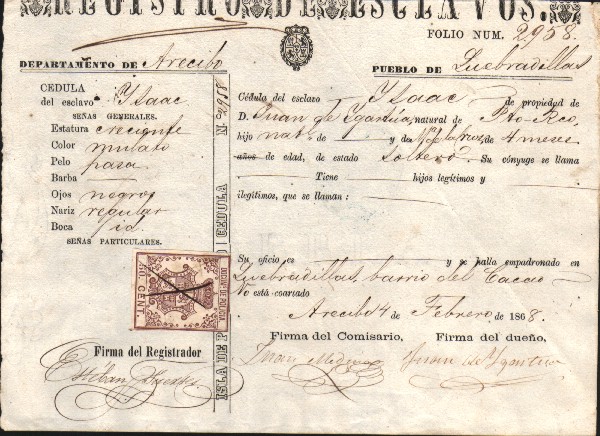 REGISTRO DE ESCLAVOS.
FOLIO NUM. 2958.
DEPARTAMENTO DE Arecibo
PUEBLO DE Quebradillas
CEDULA
del esclavo Ysaac
SEÑAS GENERALES.
Estatura creciente
Color mulato
Pelo pasa
Barba
Ojos negros
Nariz regular
Boca id
SEÑAS PARTICULARES.
Firma del Registrador
Esteban
ISLA DE P
CEDULA N
50 CENT.
Cédula del esclavo Ysaac de propiedad de
D. Juan de Ygartua, natural de Pto-Rco
hijo nat. de y de Ma. de la cruz, de 4 meses
años de edad, de estado soltero. Su cónyuge se llama
Tiene hijos legítimos y
ilegítimos, que se llaman:
Su oficio es y se halla empadronado en
Quebradillas, barrio del Cacao
No está coartado
Arecibo 4 de Febrero de 1868.
Firma del Comisario. Firma del dueño.
Juan Juan de Ygartua